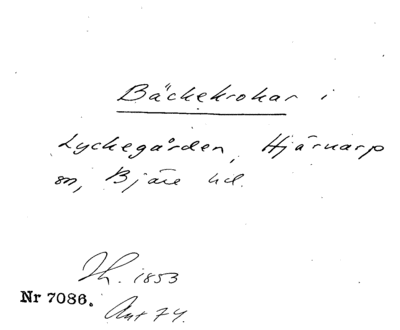 Bäckekrokar i
Lyckegården, Hjärnarp
sn, Bjäre hd.
Th. 1853
Nr 7086.
Ant 74.